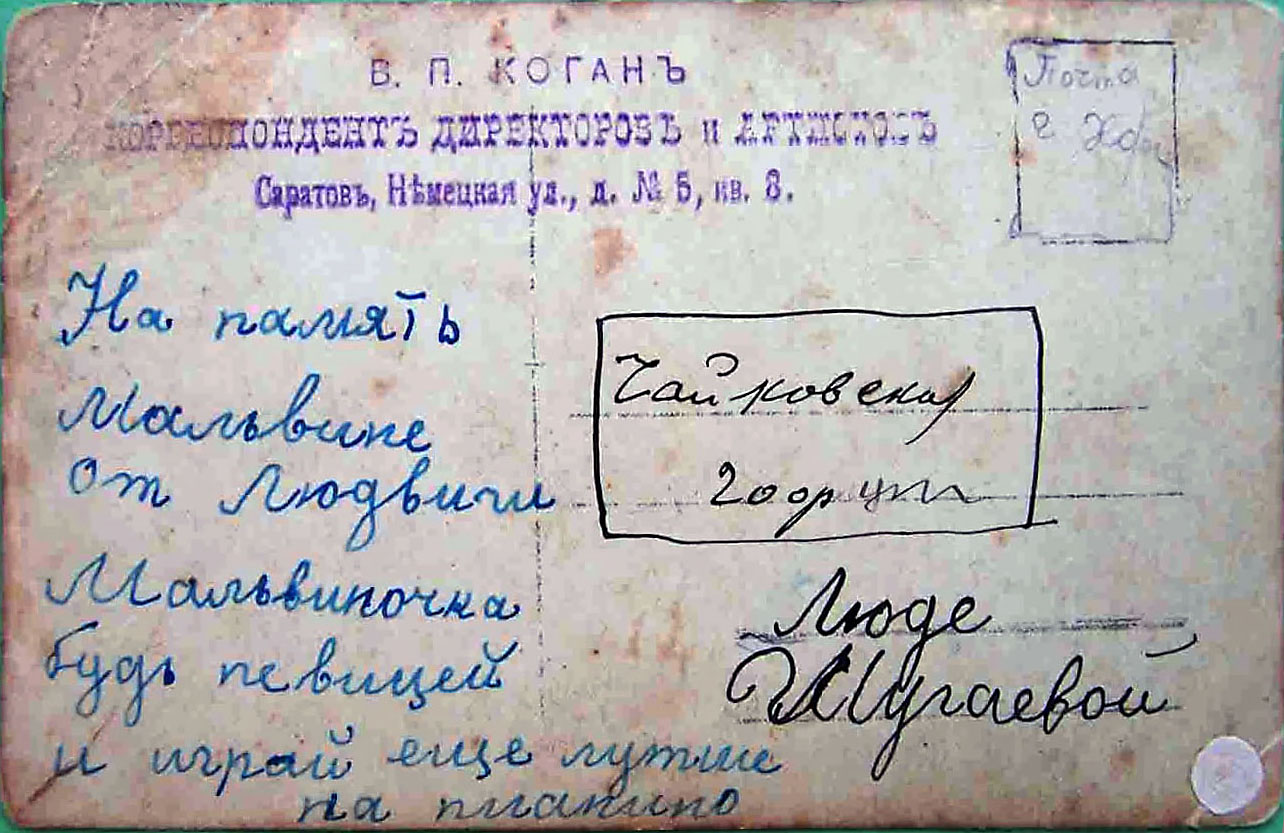 В. П. КОГАНЪ
КОРРЕСПОНДЕНТЪ ДИРЕКТОРОВЪ и АРТИСТОВЪ
Саратовъ, Нѣмецкая ул., д. № 5, кв. 3.
Почта
г
На память
Мальвине
от Людвиги
Мальвиночка
будь певицей
и играй еще лутше
на пианино
Чайковская
20
Люде
Шугаевой